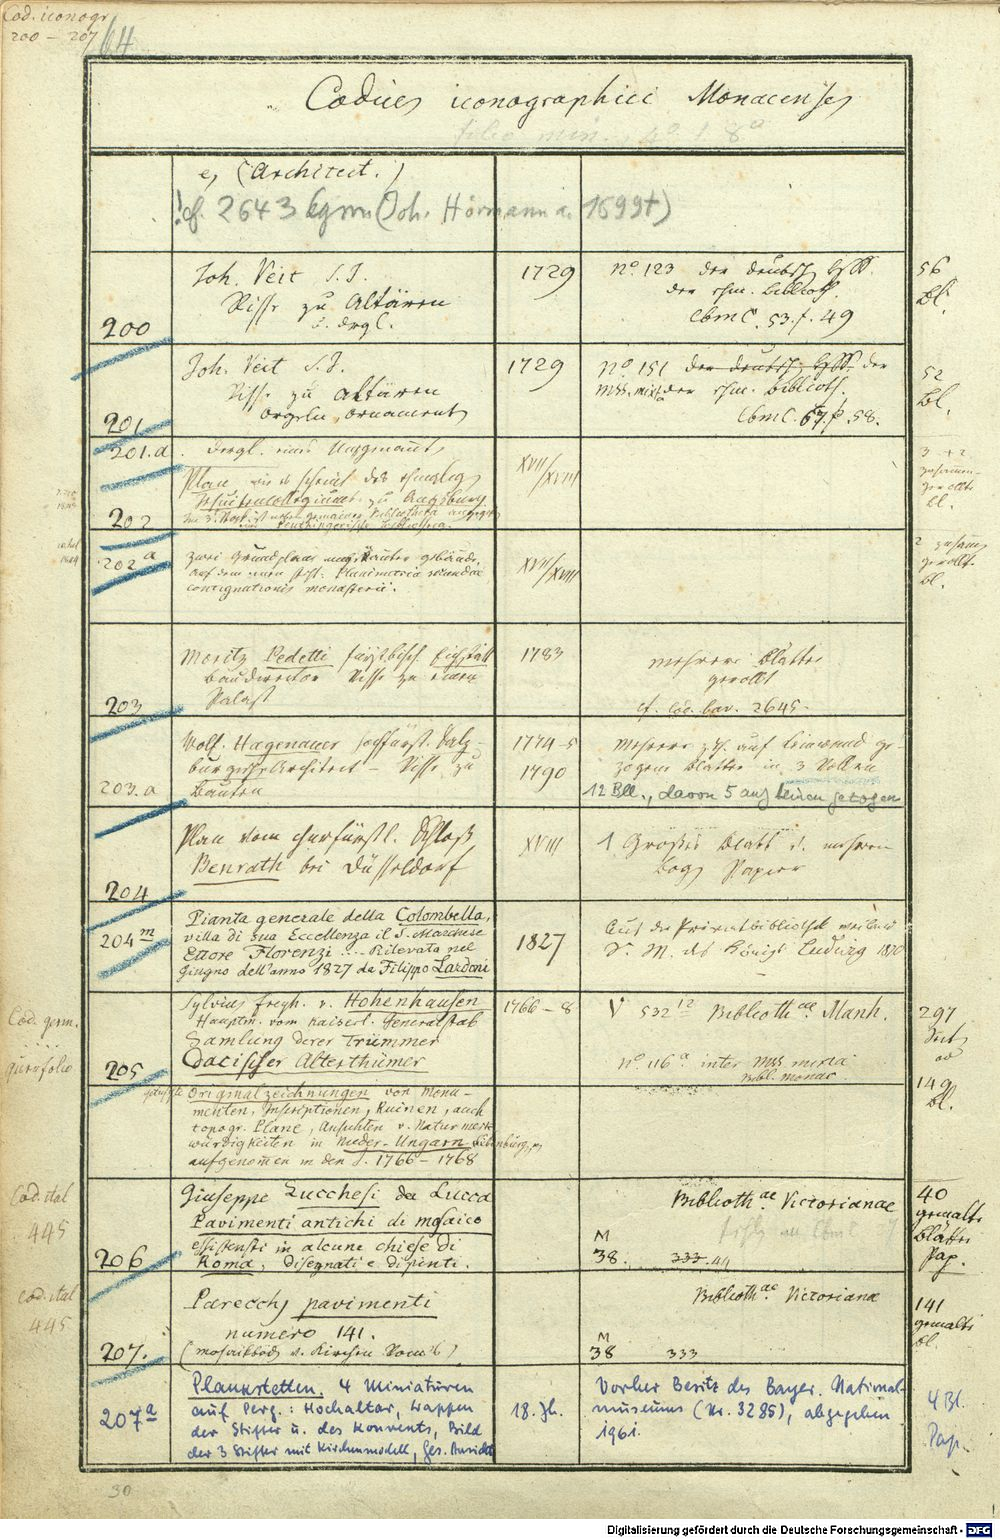 Cod. iconogr.
200 – 207
64
Codices iconographici Monacenses
folio min. 4° & 8°
e, (Architect.)
! cf. 2643 (Joh. Hörmann a. 1699 †)
200
Joh. Veit S. J.
Risse zu Altären
u. drgl.
1729
n° 123 der deutsch. HSS.
der ehm. biblioth.
Cbm C. 53. f. 49
56
Bl.
201
Joh. Veit S. J.
Risse zu Altären
Orgeln, Ornament
1729
n° 151 der deutsch. HSS. der
mss. mixt. der ehm. biblioth.
Cbm C. 67. f. 58.
52
Bl.
201.a.
dergl.
202
Plan
Jesuitencollegiums zu Augsburg
XVII/XVIII
3 + 2
zusammen-
gerollte
bl.
202 a
zwei Grundplane
auf dem einen steht: Planimetria secundae
contignationis monasterii.
XVII/XVIII
2 zusam
gerollt.
bl.
203
Moritz Pedetti fürstbisch. Eichstätt
Baudirector Risse zu einem
Palast
1783
mehrere Blätter
gerollt
cf. cod. bav. 2645.
203.a
Wolf. Hagenauer hochfürst. Salz-
burgischer Architect Risse zu
Bauten
1774–5
1790
Mehrere auf Leinwand ge-
zogene Blätter in 3 Rollen
12 Bll., davon 5 auf Leinen gezogen
204
Plan vom churfürstl. Schloß
Benrath bei Düsseldorf
XVIII
1 Großes Blatt v. mehreren
Bogen Papier
204 m
Pianta generale della Colombella,
villa di sua Eccellenza il S. Marchese
Ettore Florenzi ... Rilevata nel
giugno dell'anno 1827 da Filippo Lardoni
1827
Aus der Privatbibliothek weiland
Sr. M. des Königs Ludwig 1870
Cod. germ.
205
Sylvius freyh. v. Hohenhausen
Hauptm. vom kaiserl. Generalstab
Samlung derer Trümmer
Dacischer Alterthümer
1766–8
V 532 12 Biblioth ae Manh.
n° 116 a inter mss
Bibl. monac
297
Seiten
149
bl.
Originalzeichnungen von Monu-
menten, Inscriptionen, Ruinen, auch
topogr. Plane, Ansichten v. Naturmerk
würdigkeiten in Nieder-Ungarn
aufgenom̄en in den J. 1766–1768
Cod. ital
445
206
Giuseppe Zucchesi da Lucca
Pavimenti antichi di mosaico
essistenti in alcune chiese di
Roma, disegnati e dipinti.
Biblioth ae Victorianae
M
38. 333.
40
gemalte
Blätter
Pap.
Cod. ital
445
207.
Parecchj pavimenti
numero 141.
(mosaikböd. v. Kirchen Rom's)
Biblioth ae Victoriana
M
38 333
141
gemalte
bl.
207 a
Plankstetten. 4 Miniaturen
auf Perg.: Hochaltar, Wappen
der Stifter u. des Konvents, Bild
der 3 Stifter mit Kirchenmodell, Ges. Ansicht
18. Jh.
Vorher Besitz des Bayer. National-
museums (Nr. 3285), abgegeben
1961.
4 Bl.
Pap.
30
Digitalisierung gefördert durch die Deutsche Forschungsgemeinschaft - DFG